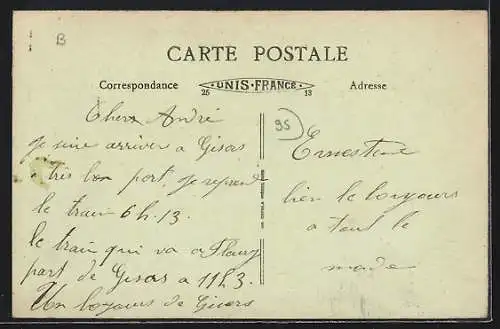 B
CARTE POSTALE
Correspondance
UNIS-FRANCE
25 13
Adresse
95
Cher André
je suis arriver a Gisors
a très bon port, je reprend
le train 6h.13
le train qui va a Fleury
part de Gisors a 11h3
Un bonjours de Gisors
Ernestine
bien le bonjours
a tout le
monde